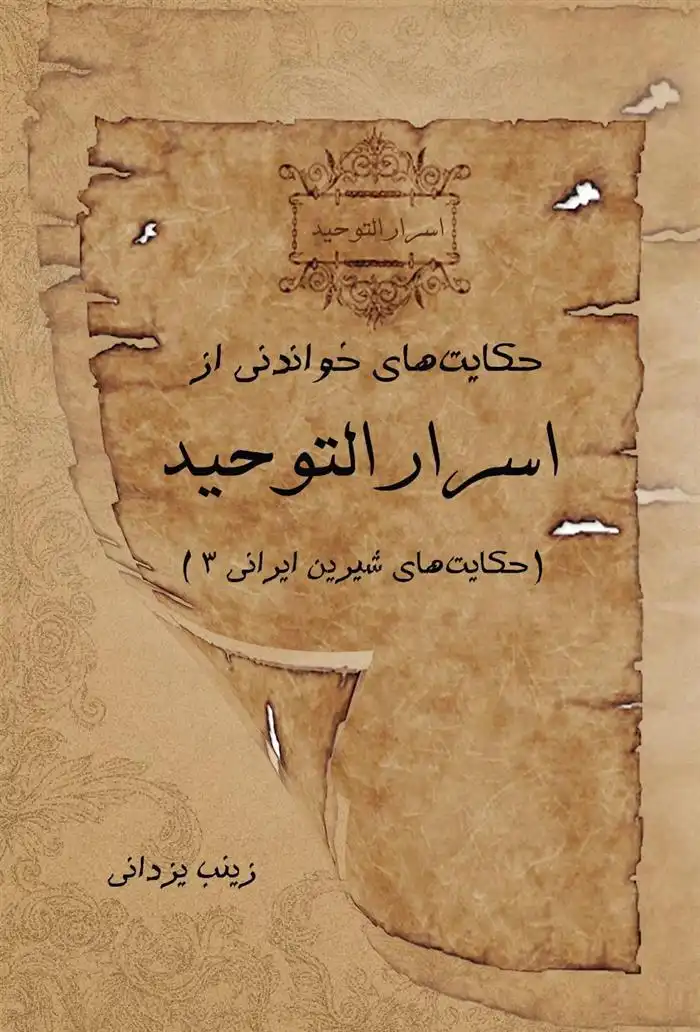 اسرار التوحید
حکایت‌های خواندنی از
اسرار التوحید
(حکایت‌های شیرین ایرانی ۳)
زینب یزدانی